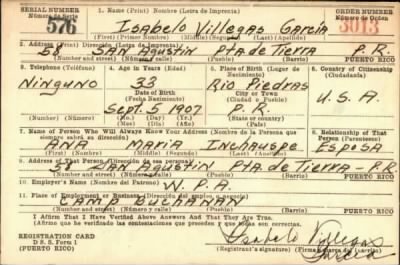 SERIAL NUMBER
Número de Serie
576
1. Name (Print) Nombre (Letra de Imprenta)
Isabelo Villegas Garcia
(First) (Primer Nombre) (Middle) (Segundo) (Last) (Apellido)
ORDER NUMBER
Número de Orden
3013
2. Address (Print) Dirección (Letra de Imprenta)
58 SAN AGUSTIN Pta. de Tierra P.R.
(Number) (Número) (Street) (Calle) (Barrio) PUERTO RICO
3. Telephone (Teléfono)
Ninguno
(Number) (Número)
4. Age in Years (Edad)
33
Date of Birth
(Fecha Nacimiento)
Sept. 5 1907
(Mo.) (Mes) (Day) (Día) (Yr.) (Año)
5. Place of Birth (Lugar de Nacimiento)
Rio Piedras
City or Town
(Ciudad o Pueblo)
P.R.
(State or country)
(País)
6. Country of Citizenship
(Ciudadanía)
U.S.A.
7. Name of Person Who Will Always Know Your Address (Nombre de la Persona que siempre sabrá su dirección)
ANA MARIA INCHAUSPE
(First) (Primer Nombre) (Middle) (Segundo) (Last) (Apellido)
8. Relationship of That Person (Parentesco)
ESPOSA
9. Address of That Person (Dirección de esa persona)
58 SAN AGUSTIN Pta. de Tierra P.R.
(Number) (Número) (Street) (Calle) (Barrio) PUERTO RICO
10. Employer's Name (Nombre del Patrono)
W.P.A.
11. Place of Employment or Business (Dirección del empleo)
CAMP BUCHANAN
(Number) (Número) (Street) (Calle) (Barrio) PUERTO RICO
I Affirm That I Have Verified Above Answers And That They Are True.
(Afirmo que he verificado las contestaciones que preceden y que las mismas son ciertas)
REGISTRATION CARD
D S S. Form 1
(PUERTO RICO)
Isabelo Villegas
Garcia
(Registrant's signature)